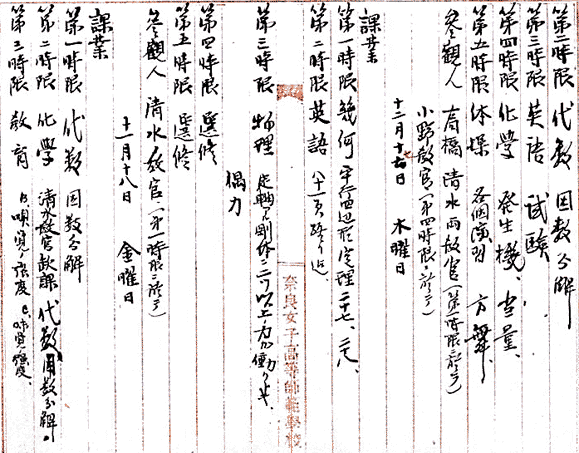 第二時限 代数 因数分解
第三時限 英語 試験
第四時限 化学 発生機、当量、
第五時限 体操 各個演習 方舞、
参観人 高橋 清水両教官(第一時限ニ於テ)
小野教官(第四時限ニ於テ)
十二月十七日 木曜日
課業
第一時限 幾何 平行四辺形 定理二十七、二八、
第二時限 英語 八十一頁 迄
第三時限 物理 定軸アル剛体ニ二ツ以上ノ力ガ働クトキ
偶力
第四時限 選修
第五時限 選修
参観人 清水教官(第一時限ニ於テ)
十二月十八日 金曜日
課業
第一時限 代数 因数分解
第二時限 化学 清水教官欠課 代数 因数分解
第三時限 教育 強度
奈良女子高等師範学校